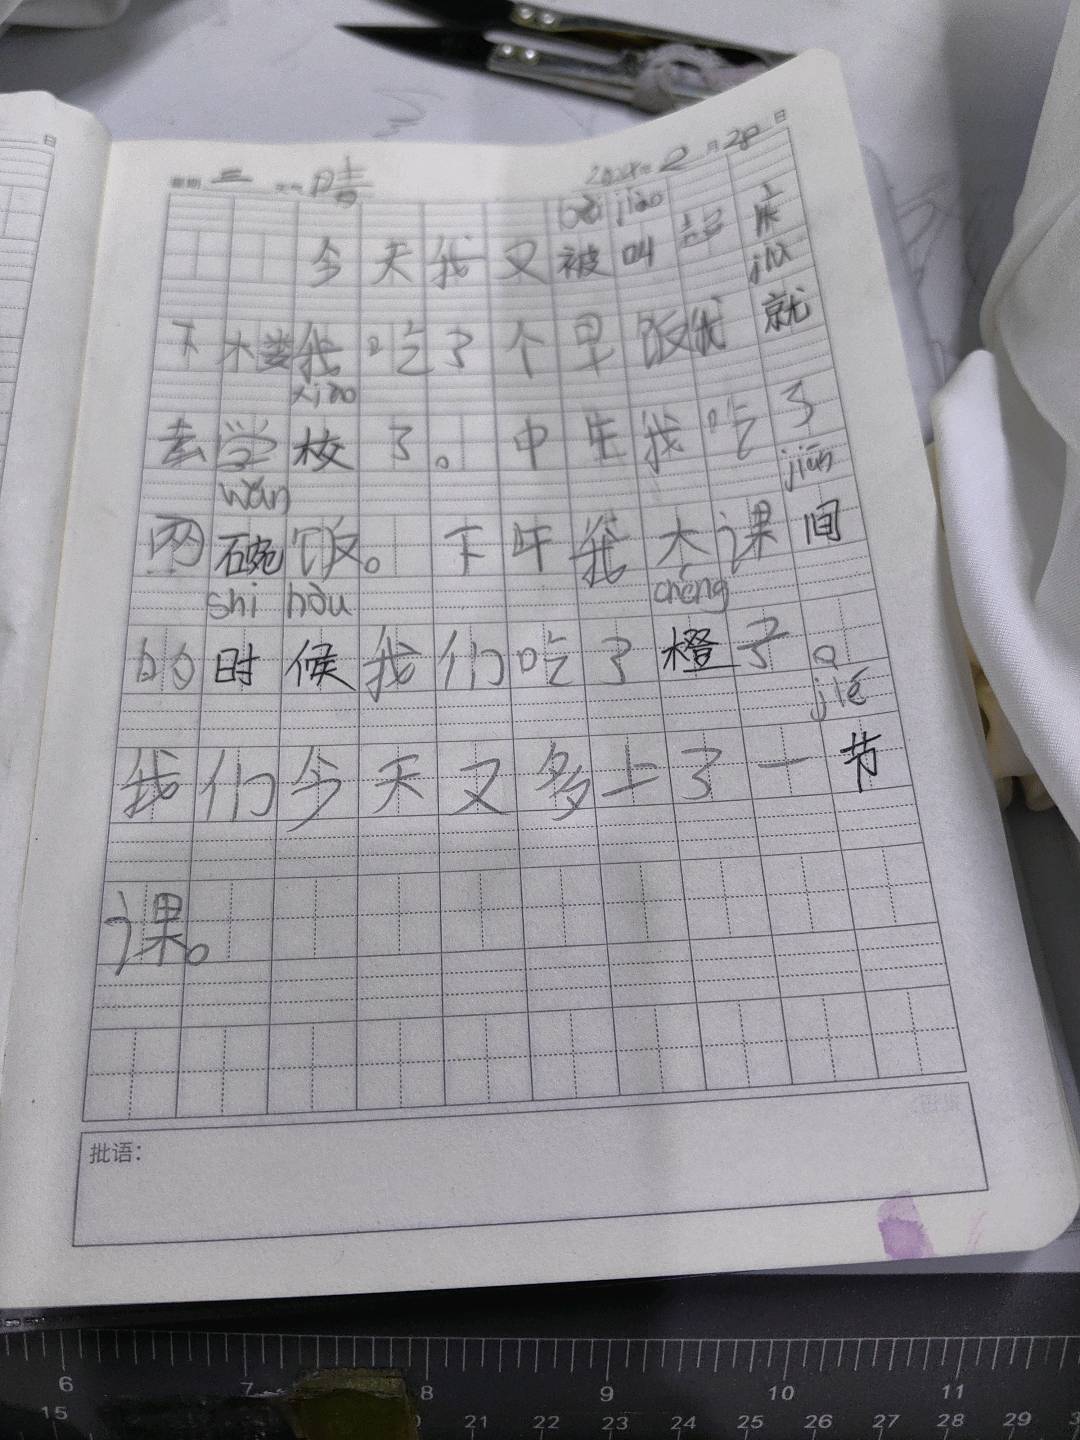 星期 三 天气 晴 2024年 2 月 28 日
bèi jiào
今天我又被叫起床
jiù
下楼我吃了个早饭我就
xiào
去学校了。中午我吃了
wǎn jiān
两碗饭。下午我大课间
shí hòu chéng
的时候我们吃了橙子。
jié
我们今天又多上了一节
课。
批语：
日
6 7 8 9 10 11
15 21 22 23 24 25 26 27 28 29